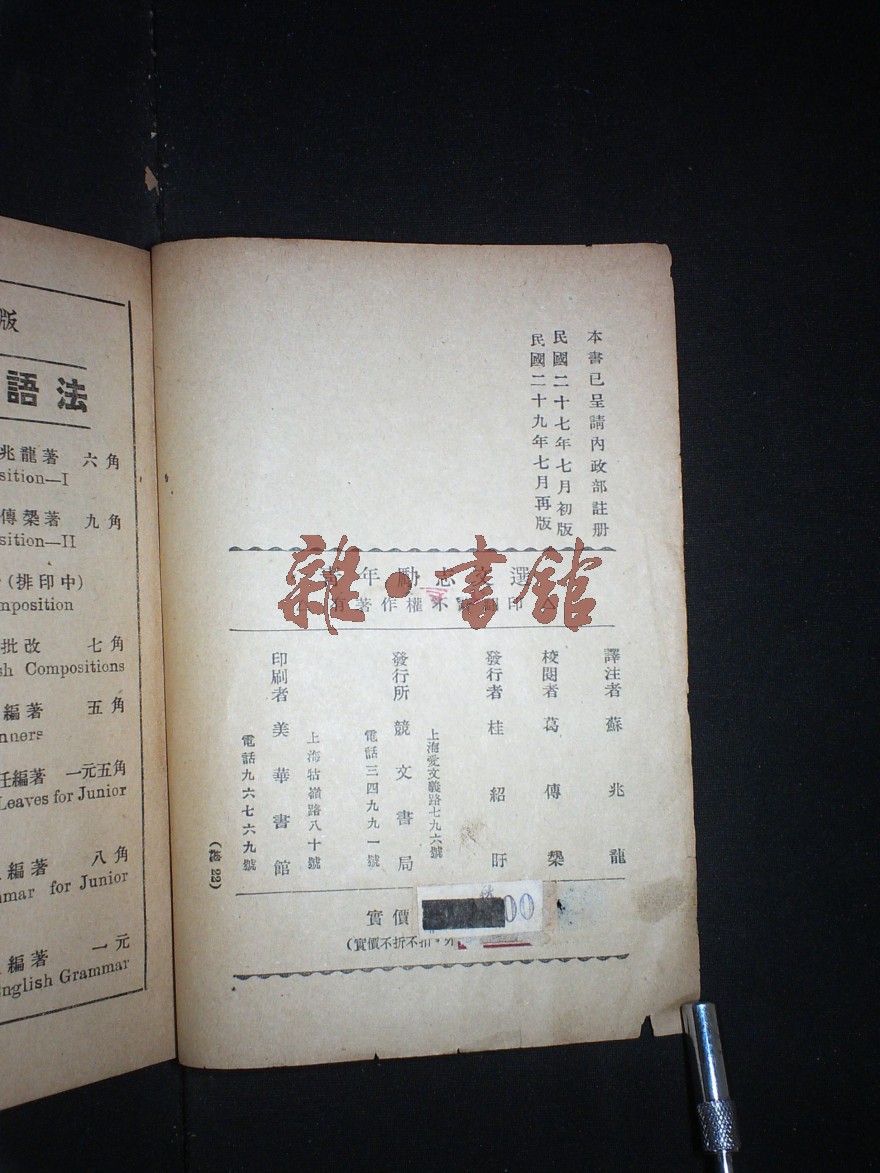 本書已呈請內政部註册
民國二十七年七月初版
民國二十九年七月再版
青年勵志文選
有著作權不
印
雜·書館
譯注者 蘇兆龍
校閱者 葛傳槼
發行者 桂紹盱
上海愛文義路七九六號
發行所 競文書局
電話三四九九一號
上海牯嶺路八十號
印刷者 美華書館
電話九六七六九號
(總 22)
實價
00
(實價不折不扣
版
語法
兆龍著 六角
sition—I
傳槼著 九角
sition—II
(排印中)
mposition
批改 七角
sh Compositions
編著 五角
nners
任編著 一元五角
Leaves for Junior
編著 八角
mmar for Junior
編著 一元
nglish Grammar